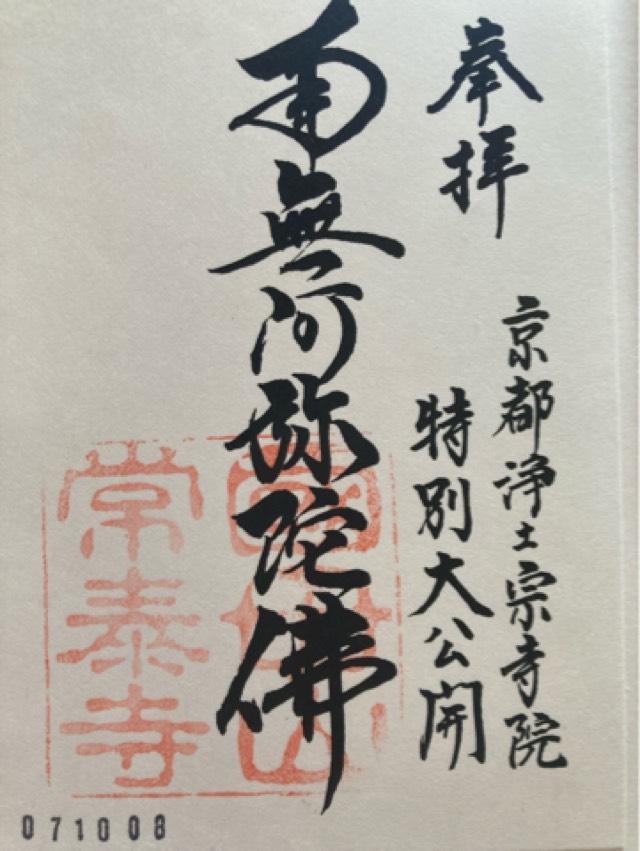 奉拝
京都浄土宗寺院
特別大公開
南無阿弥陀佛
常泰寺
071008